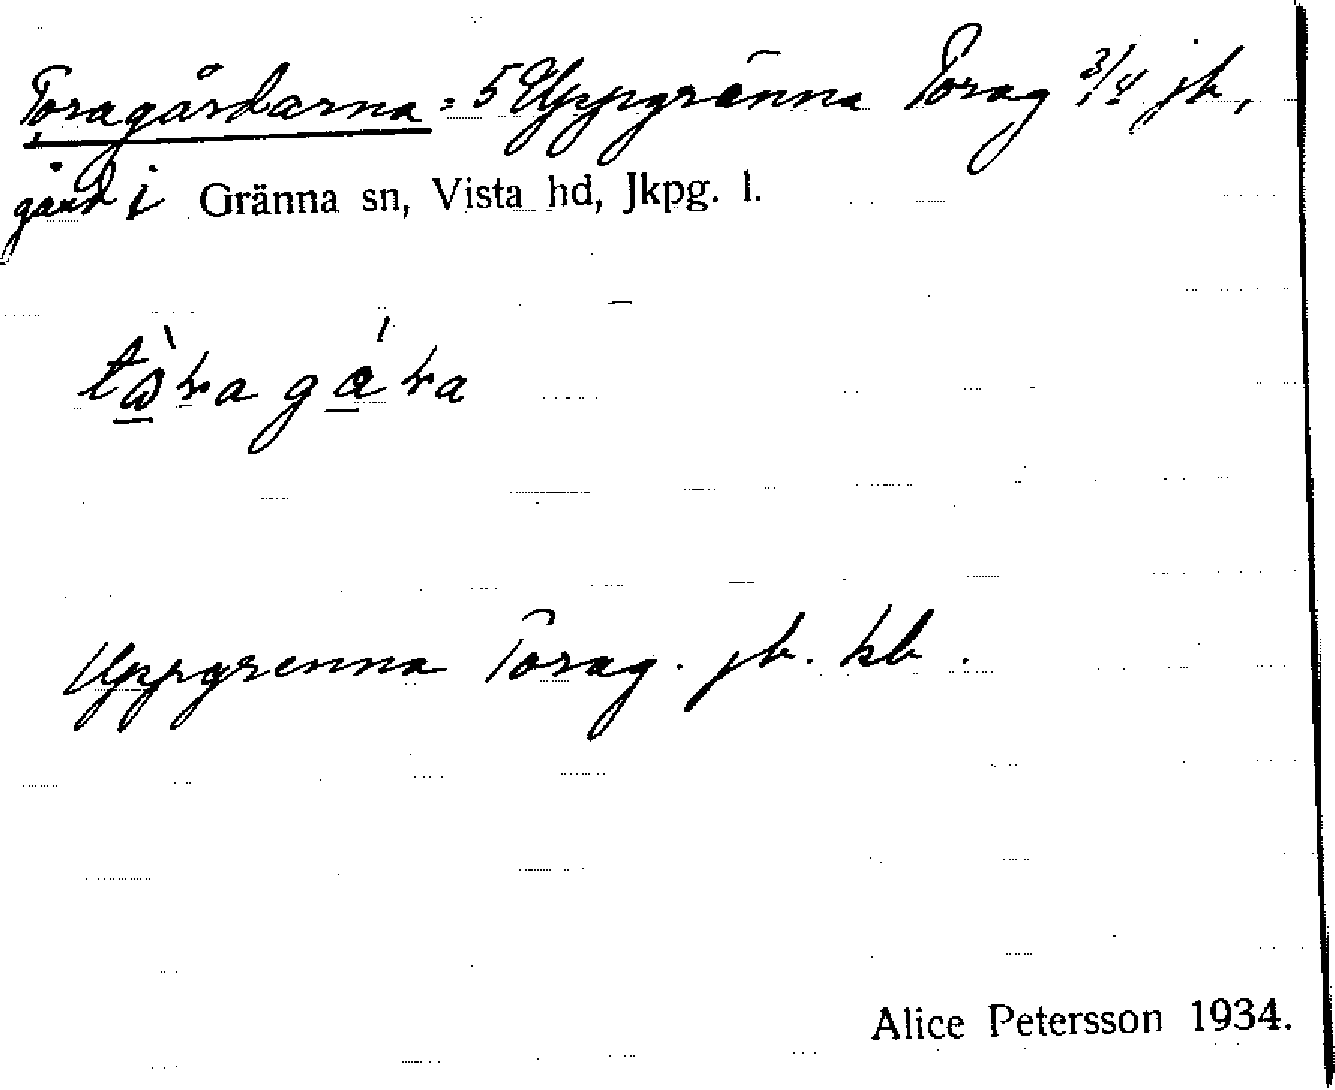 Toragårdarna = 5 Uppgränna Torag 3/4 jb,
gård i Gränna sn, Vista hd, Jkpg. l.
Uppgrenna Torag. jb. kb.
Alice Petersson 1934.